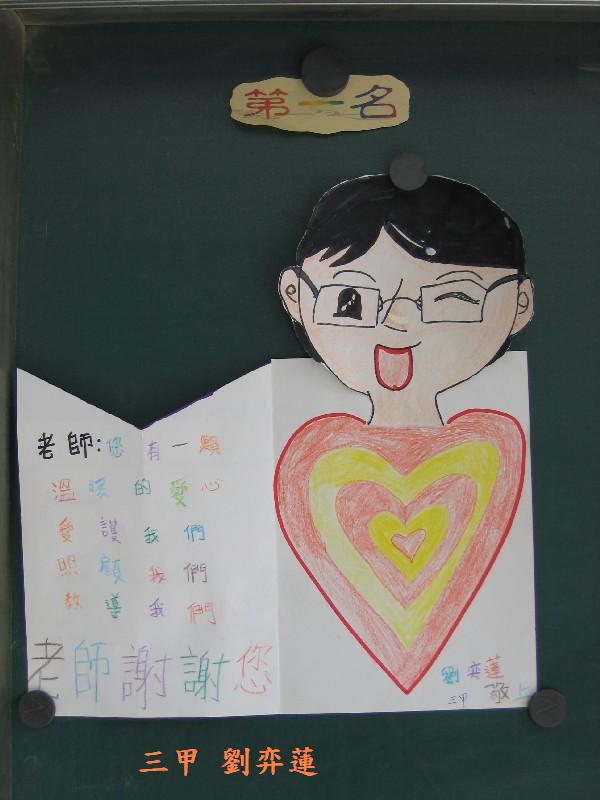 第一名
老師：您有一顆
溫暖的愛心
愛護我們
照顧我們
教導我們
老師謝謝您
劉奕蓮
三甲 敬上
三甲 劉弈蓮